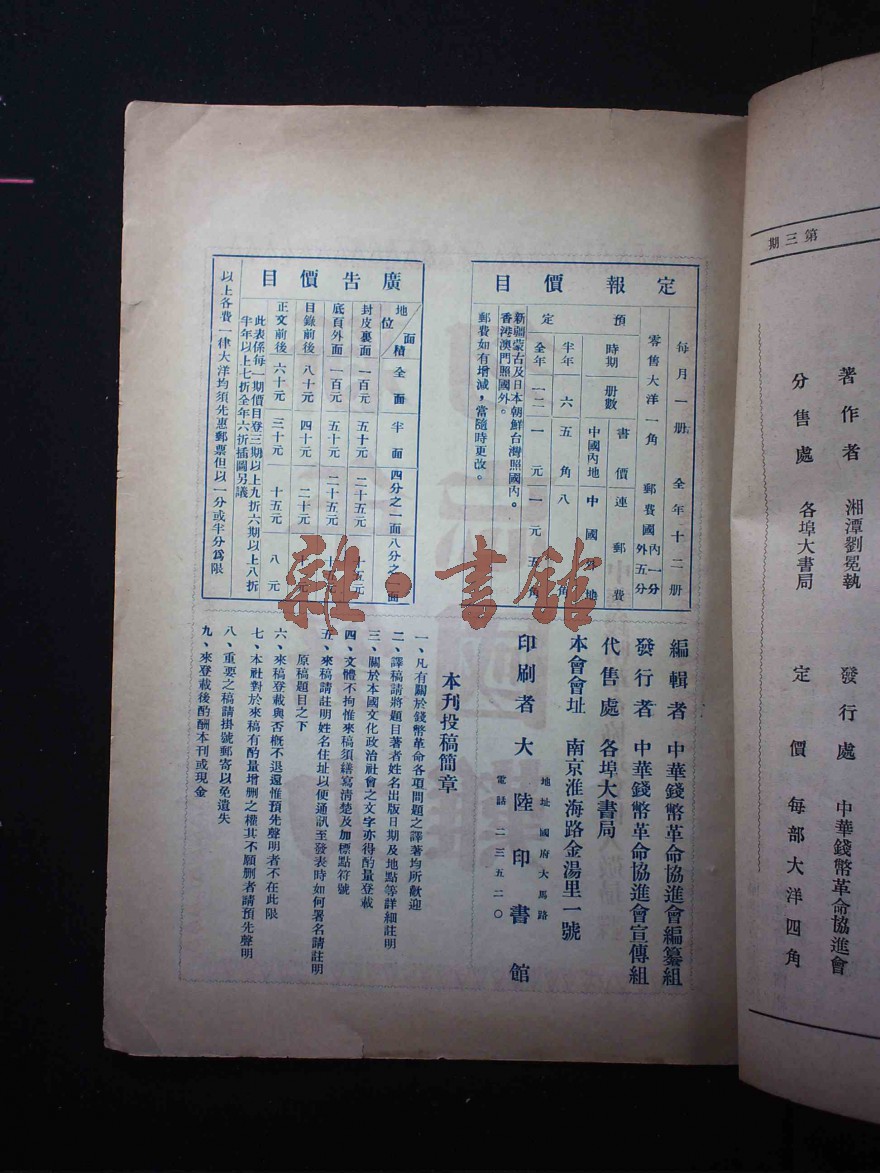 第三期
著作者 湘潭劉冕執 發行處 中華錢幣革命協進會
分售處 各埠大書局 定價 每部大洋四角
定報價目
每月一册 全年十二册
零售大洋一角 郵費國內一分 外五分
預定
時期 册數 書價連郵費
中國內地 中國外地
半年 六 五角 八角
全年 一二 一元 一元五角
新疆蒙古及日本朝鮮台灣照國內。
香港澳門照國外。
郵費如有增減，當隨時更改。
編輯者 中華錢幣革命協進會編纂組
發行者 中華錢幣革命協進會宣傳組
代售處 各埠大書局
本會會址 南京淮海路金湯里一號
印刷者 大陸印書館
地址 國府大馬路
電話 二三五二〇
廣告價目
地位 面積 全面 半面 四分之一面 八分之一面
封皮裏面 一百元 五十元 二十五元 十五元
底頁外面 一百元 五十元 二十五元 十五元
目錄前後 八十元 四十元 二十元
正文前後 六十元 三十元 十五元 八元
此表係每一期價目登三期以上九折六期以上八折
半年以上七折全年六折插圖另議
以上各費一律大洋均須先惠郵票但以一分或半分爲限
本刊投稿簡章
一、凡有關於錢幣革命各項問題之譯著均所歡迎
二、譯稿請將題目著者姓名出版日期及地點等詳細註明
三、關於本國文化政治社會之文字亦得酌量登載
四、文體不拘惟來稿須繕寫淸楚及加標點符號
五、來稿請註明姓名住址以便通訊至發表時如何署名請註明
原稿題目之下
六、來稿登載與否概不退還惟預先聲明者不在此限
七、本社對於來稿有酌量增删之權其不願删者請預先聲明
八、重要之稿請掛號郵寄以免遺失
九、來登載後酌酬本刊或現金
雜·書館